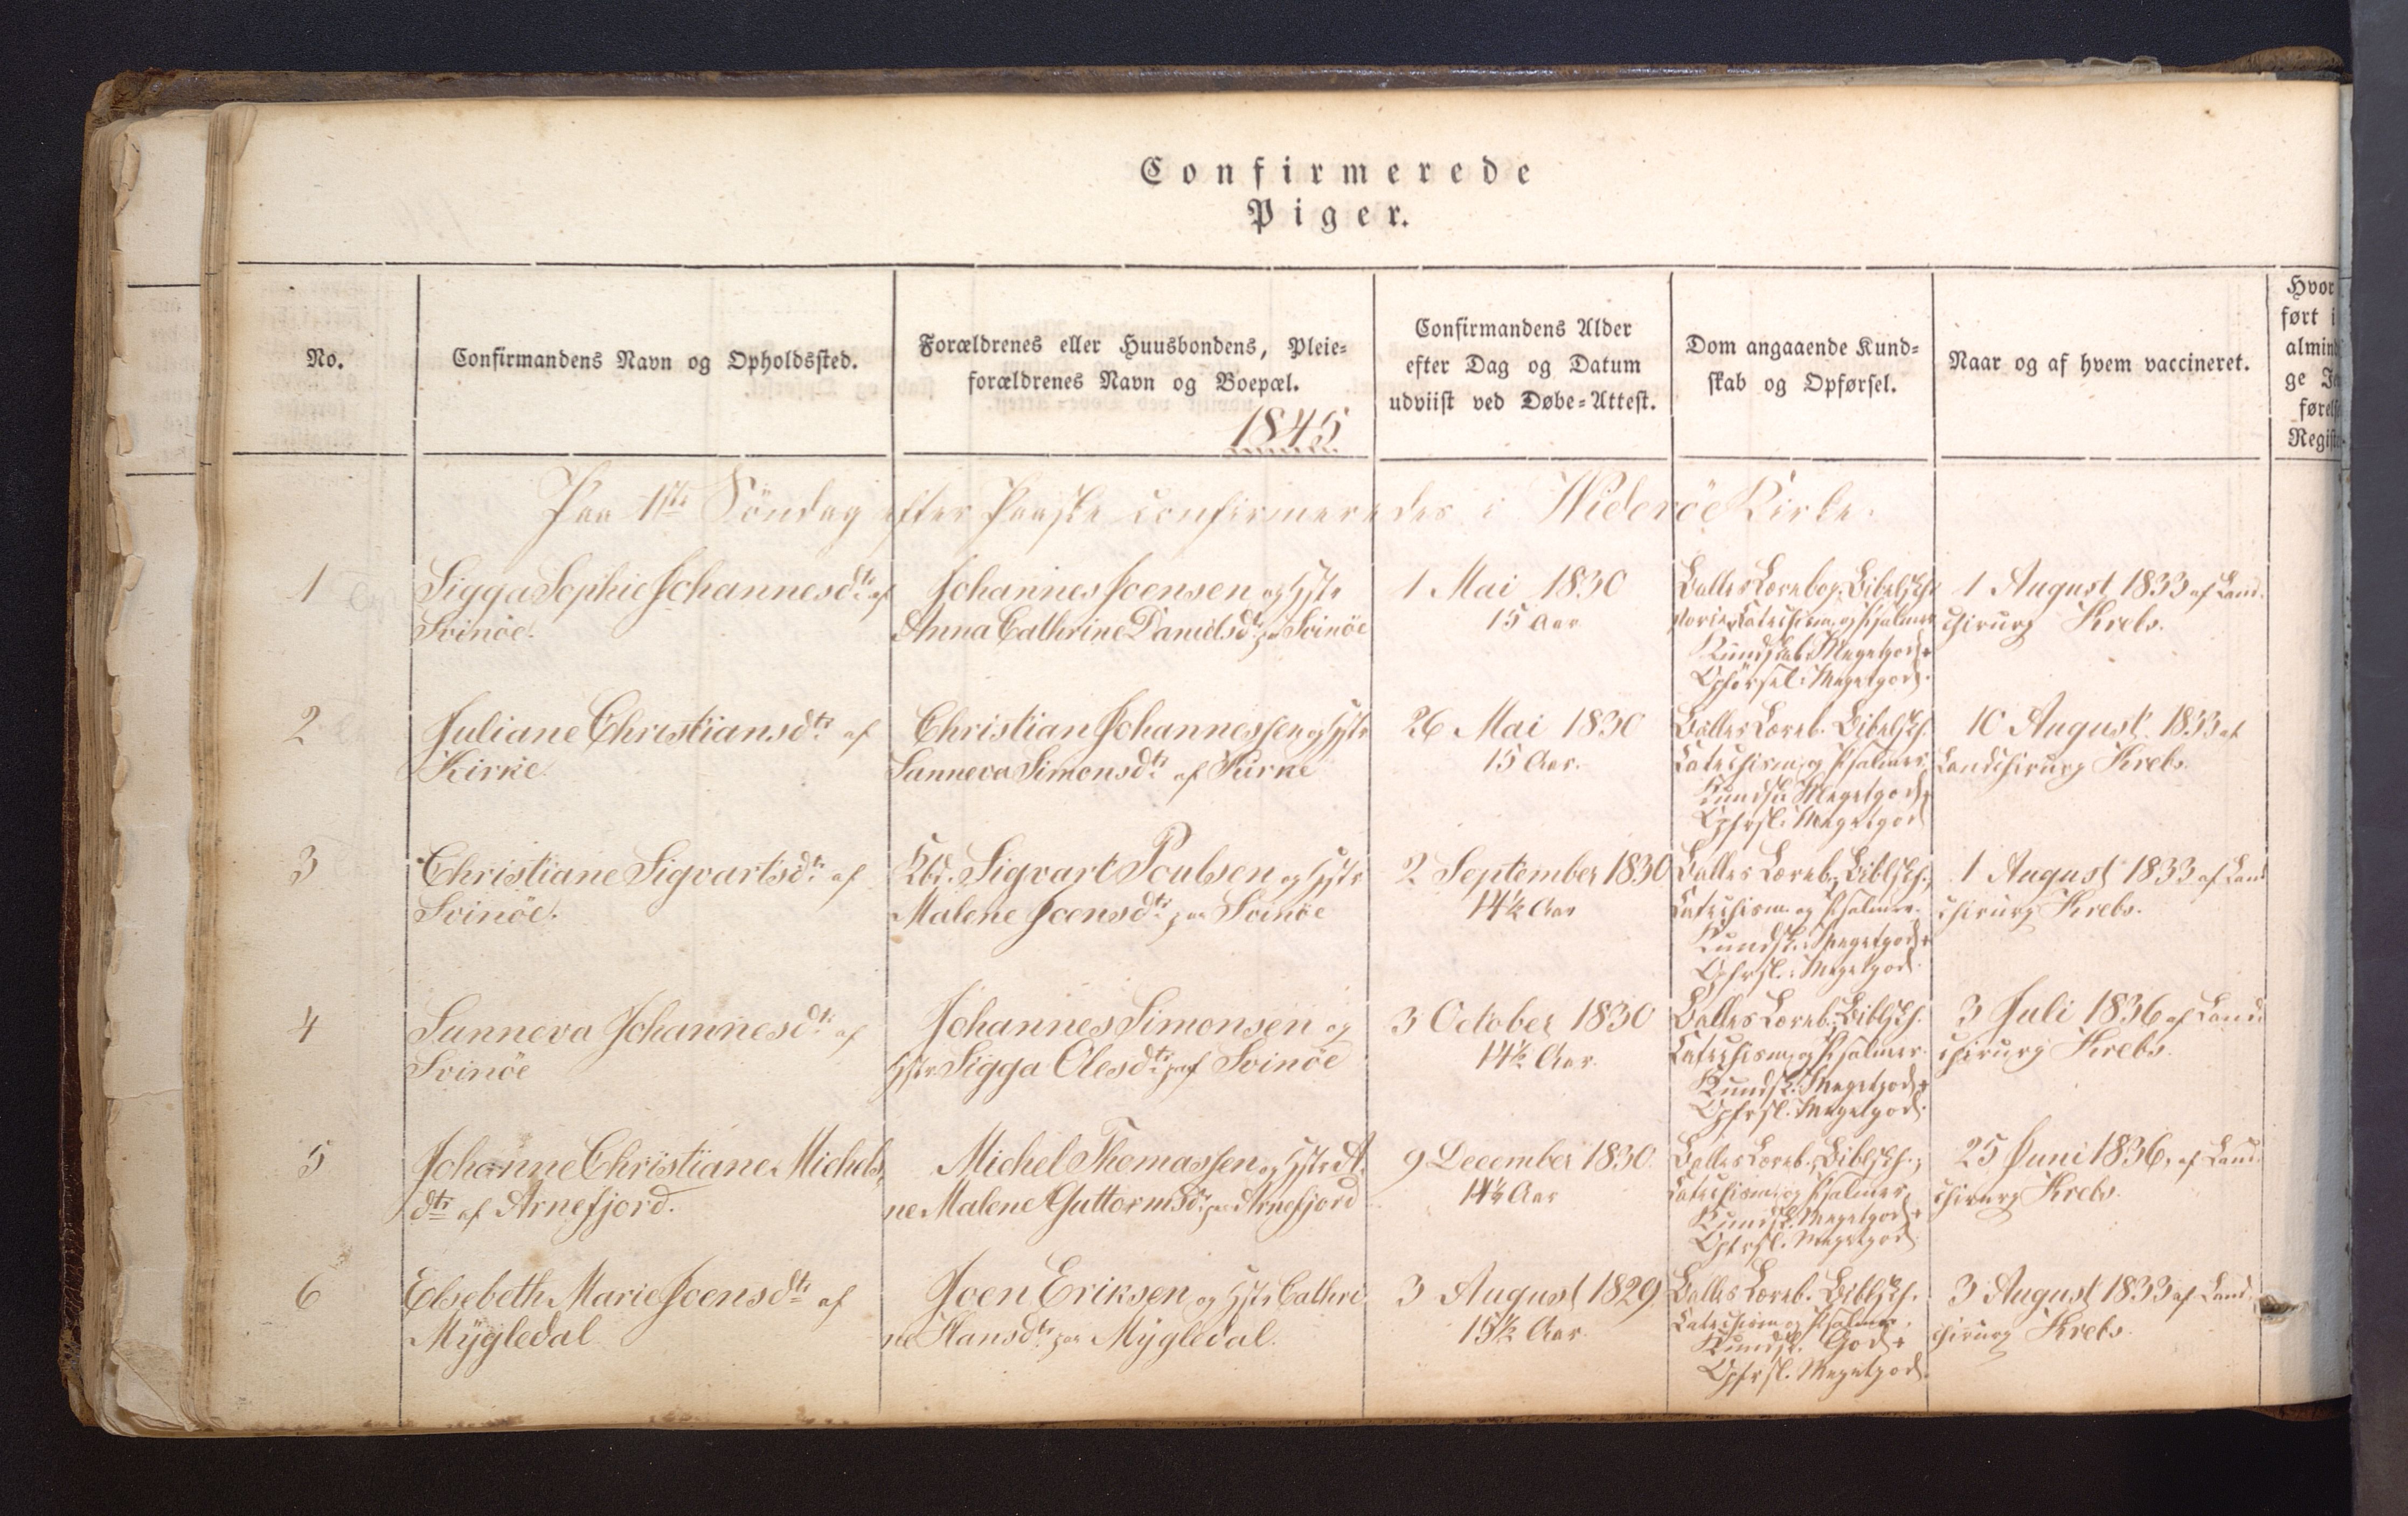 Confirmerede
Piger.
No.
Confirmandens Navn og Opholdssted.
Forældrenes eller Huusbondens, Pleie=
forældrenes Navn og Boepæl.
1845
Confirmandens Alder
efter Dag og Datum
udviist ved Døbe=Attest.
Dom angaaende Kund=
skab og Opførsel.
Naar og af hvem vaccineret.
Hvor
ført i
almind
ge Je
førels
Registe
Paa 1ste Söndag efter Paaske confirmeredes i Wideröe Kirke.
1
Sigga Sophie Johannesdtr af
Svinöe.
Johannes Joensen og Hstr
Anna Cathrine Danielsdtr paa Svinöe
1 Mai 1830
15 Aar
Balles Lærebog, Bibelsk Hi
storie, Katechism. og Psalmer
Kundskab: Megetgod +
Opförsel: Megetgod.
1 August 1833 af Land-
chirurg Krebs.
2
Juliane Christiansdtr af
Kirke.
Christian Johannessen og Hstr
Sunneva Simonsdtr af Kirke
26 Mai 1830
15 Aar.
Balles Læreb. Bibelsk H.
Catechism. og Psalmer
Kundsk. Megetgod +
Opfrsl. Megetgod
10 August 1833 af
Landchirurg Krebs.
3
Christiane Sigvartsdtr af
Svinöe.
Kbd. Sigvart Poulsen og Hstr
Malene Joensdtr paa Svinöe
2 September 1830
14½ Aar
Balles Læreb., Biblsk H.,
Catechism. og Psalmer.
Kundsk.: Megetgod +
Opfrsl.: Megetgod.
1 August 1833 af Land
chirurg Krebs.
4
Sunneva Johannesdtr af
Svinöe
Johannes Simonsen og
Hstr Sigga Olesdtr af Svinöe
3 October 1830
14½ Aar.
Balles Læreb., Biblsk H.
Catechism. og Psalmer.
Kundsk. Megetgod +
Opfrsl. Megetgod.
3 Juli 1836 af Land-
chirurg Krebs.
5
Johanne Christiane Michels
dtr af Arnefjord.
Michel Thomassen og Hstr A
ne Malene Guttormsdtr paa Arnefjord
9 December 1830.
14½ Aar
Balles Læreb., Biblsk H.,
Catechism. og Psalmer,
Kundsk. Megetgod +
Opfrsl. Megetgod
25 Juni 1836, af Land-
chirurg Krebs.
6
Elsebeth Marie Joensdtr af
Mÿgledal
Joen Eriksen og Hstr Cathri
ne Hansdtr paa Mÿgledal.
3 August 1829.
15½ Aar.
Balles Læreb. Biblsk H.
Catechism og Psalmer.
Kundsk. God +
Opfrsl. Megetgod.
3 August 1833 af Land-
chirurg Krebs.